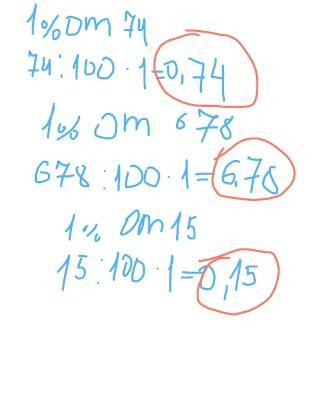 1% от 74
74:100·1=0,74
1% от 678
678:100·1=6,78
1% от 15
15:100·1=0,15